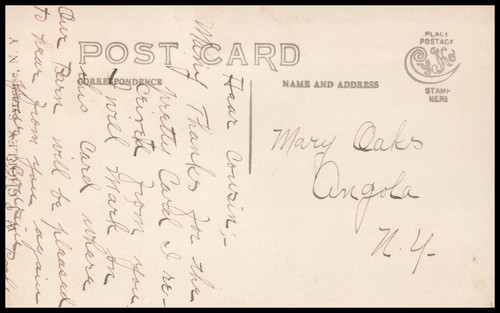 POST CARD
CORRESPONDENCE
NAME AND ADDRESS
PLACE
POSTAGE
STAMP
HERE
Dear Cousin;-
Many Thanks for the
pretty Card I re-
ceived from you
I will Mark on
this card where
Our Barn will be pleased
to hear from you again
Mary Oaks
Angola
N.Y.
N.Y.